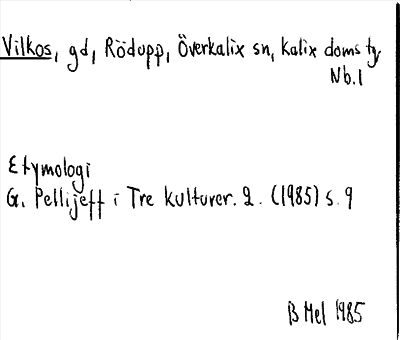 Vilkos, gd, Rödupp, Överkalix sn, Kalix doms ty
Nb.l
Etymologi
G. Pellijeff i Tre kulturer. 2. (1985) s. 9
B Mel 1985